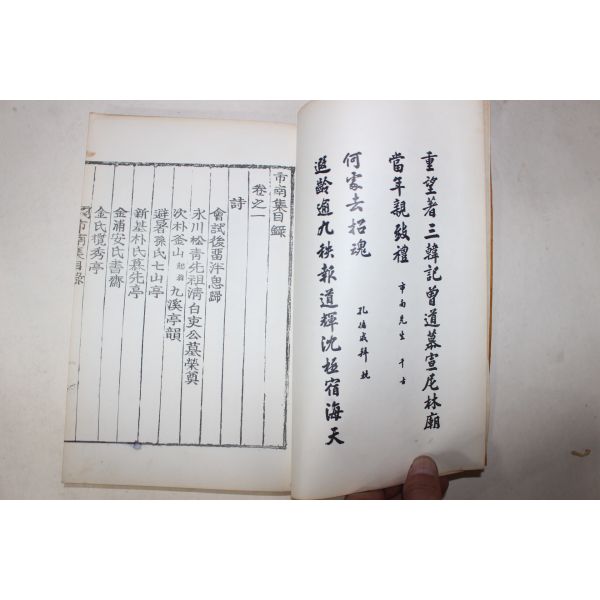 重望著三韓記曾道慕宣尼林廟
當年親致禮
市南先生千古
何家去招魂
孔德成拜輓
遐齡逾九秩報道輝沈極宿海天
市南集目錄
卷之一
詩
會試後留泮思歸
永川松青先祖淸白吏公墓榮奠
次朴釜山九溪亭韻
避暑孫氏七山亭
新基朴氏慕先亭
金浦安氏書齋
金氏攬秀亭
市南集目錄